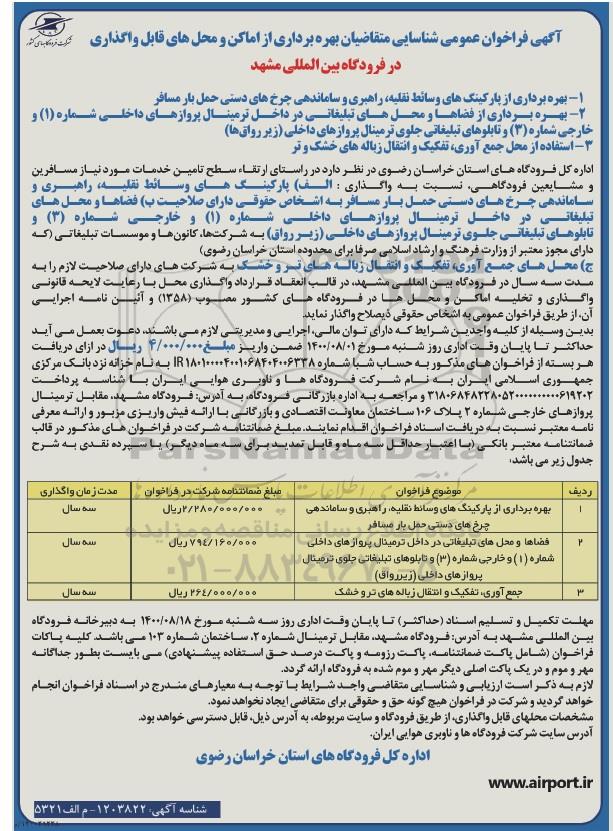 شرکت فرودگاههای کشور
آگهی فراخوان عمومی شناسایی متقاضیان بهره برداری از اماکن و محل های قابل واگذاری
در فرودگاه بین المللی مشهد
۱- بهره برداری از پارکینگ های وسائط نقلیه، راهبری و ساماندهی چرخ های دستی حمل بار مسافر
۲- بهره برداری از فضاها و محل های تبلیغاتی در داخل ترمینال پروازهای داخلی شماره (۱) و
خارجی شماره (۳) و تابلوهای تبلیغاتی جلوی ترمینال پروازهای داخلی (زیر رواق‌ها)
۳- استفاده از محل جمع آوری، تفکیک و انتقال زباله های خشک و تر
اداره کل فرودگاه های استان خراسان رضوی در نظر دارد در راستای ارتقاء سطح تامین خدمات مورد نیاز مسافرین
و مشایعین فرودگاهی، نسبت به واگذاری : الف) پارکینگ های وسائط نقلیه، راهبری و
ساماندهی چرخ های دستی حمل بار مسافر به اشخاص حقوقی دارای صلاحیت ب) فضاها و محل های
تبلیغاتی در داخل ترمینال پروازهای داخلی شماره (۱) و خارجی شماره (۳) و
تابلوهای تبلیغاتی جلوی ترمینال پروازهای داخلی (زیر رواق) به شرکت‌ها، کانون‌ها و موسسات تبلیغاتی (که
دارای مجوز معتبر از وزارت فرهنگ و ارشاد اسلامی صرفا برای محدوده استان خراسان رضوی)
ج) محل های جمع آوری، تفکیک و انتقال زباله های تر و خشک به شرکت های دارای صلاحیت لازم را به
مدت سه سال در فرودگاه بین المللی مشهد، در قالب انعقاد قرارداد واگذاری محل با رعایت لایحه قانونی
واگذاری و تخلیه اماکن و محل ها در فرودگاه های کشور مصوب (۱۳۵۸) و آئین نامه اجرایی
آن، از طریق فراخوان عمومی به اشخاص حقوقی ذیصلاح واگذار نماید.
بدین وسیله از کلیه واجدین شرایط که دارای توان مالی، اجرایی و مدیریتی لازم می باشند، دعوت بعمل می آید
حداکثر تا پایان وقت اداری روز شنبه مورخ ۱۴۰۰/۰۸/۰۱ ضمن واریز مبلغ ۴/۰۰۰/۰۰۰ ریال در ازای دریافت
هر بسته از فراخوان های مذکور به حساب شبا شماره IR۱۸۰۱۰۰۰۰۴۰۰۱۰۶۸۴۰۴۰۰۶۳۳۸ به نام خزانه نزد بانک مرکزی
جمهوری اسلامی ایران به نام شرکت فرودگاه ها و ناوبری هوایی ایران با شناسه پرداخت
۳۱۸۰۶۸۴۸۲۲۸۰۵۲۰۰۰۰۰۰۰۰۰۰۶۱۹۲۰۲ و مراجعه به اداره بازرگانی فرودگاه، به آدرس: فرودگاه مشهد، مقابل ترمینال
پروازهای خارجی شماره ۲ پلاک ۱۰۶ ساختمان معاونت اقتصادی و بازرگانی با ارائه فیش واریزی مزبور و ارائه معرفی
نامه معتبر نسبت به دریافت اسناد فراخوان اقدام نمایند. مبلغ ضمانتنامه شرکت در فراخوان های مذکور در قالب
ضمانتنامه معتبر بانکی (با اعتبار حداقل سه ماه و قابل تمدید برای سه ماه دیگر) یا سپرده نقدی به شرح
جدول زیر می باشد:
ردیف موضوع فراخوان مبلغ ضمانتنامه شرکت در فراخوان مدت زمان واگذاری
۱ بهره برداری از پارکینگ های وسائط نقلیه، راهبری و ساماندهی ۲/۲۸۰/۰۰۰/۰۰۰ ریال سه سال
چرخ های دستی حمل بار مسافر
۲ فضاها و محل های تبلیغاتی در داخل ترمینال پروازهای داخلی ۷۹۴/۱۶۰/۰۰۰ ریال سه سال
شماره (۱) و خارجی شماره (۳) و تابلوهای تبلیغاتی جلوی ترمینال
پروازهای داخلی (زیر رواق)
۳ جمع آوری، تفکیک و انتقال زباله های تر و خشک ۲۶۴/۰۰۰/۰۰۰ ریال سه سال
مهلت تکمیل و تسلیم اسناد (حداکثر) تا پایان وقت اداری روز سه شنبه مورخ ۱۴۰۰/۰۸/۱۸ به دبیرخانه فرودگاه
بین المللی مشهد به آدرس: فرودگاه مشهد، مقابل ترمینال شماره ۲، ساختمان شماره ۱۰۳ می باشد. کلیه پاکات
فراخوان (شامل پاکت ضمانتنامه، پاکت رزومه و پاکت درصد حق استفاده پیشنهادی) می بایست بطور جداگانه
مهر و موم و در یک پاکت اصلی دیگر مهر و موم شده به فرودگاه ارائه گردد.
لازم به ذکر است ارزیابی و شناسایی متقاضی واجد شرایط با توجه به معیارهای مندرج در اسناد فراخوان انجام
خواهد گردید و شرکت در فراخوان هیچ گونه حق و حقوقی برای متقاضی ایجاد نخواهد نمود.
مشخصات محلهای قابل واگذاری، از طریق فرودگاه و سایت مربوطه، به آدرس ذیل، قابل دسترسی خواهد بود.
آدرس سایت شرکت فرودگاه ها و ناوبری هوایی ایران.
اداره کل فرودگاه های استان خراسان رضوی
www.airport.ir
شناسه آگهی: ۱۲۰۳۸۲۲- م الف ۵۳۲۱
ParsNamadData
۰۲۱-۸۸۳۴۹۶۷۰-۵